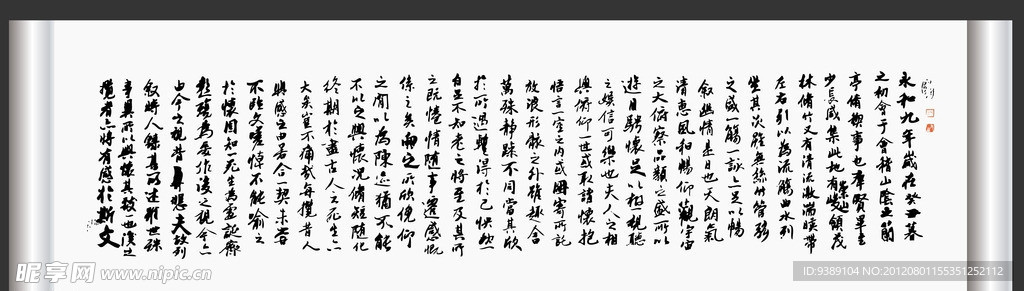 永和九年歲在癸丑暮
之初會于會稽山陰之蘭
亭脩禊事也羣賢畢至
少長咸集此地有崇山峻領茂
林脩竹又有清流激湍暎帶
左右引以為流觴曲水列
坐其次雖無絲竹管弦
之盛一觴一詠亦足以暢
敘幽情是日也天朗氣
清惠風和暢仰觀宇宙
之大俯察品類之盛所以
遊目騁懷足以極視聽
之娛信可樂也夫人之相
與俯仰一世或取諸懷抱
悟言一室之內或因寄所託
放浪形骸之外雖趣舍
萬殊靜躁不同當其欣
於所遇蹔得於己快然
自足不知老之將至及其所
之既惓情隨事遷感慨
係之矣向之所欣俛仰
之閒以為陳迹猶不能
不以之興懷況脩短隨化
終期於盡古人云死生亦
大矣豈不痛哉每攬昔人
興感之由若合一契未嘗
不臨文嗟悼不能喻之
於懷固知一死生為虛誕齊
彭殤為妄作後之視今亦
由今之視昔悲夫故列
敘時人錄其所述雖世殊
事異所以興懷其致一也後之
攬者亦將有感於斯文
昵享网 www.nipic.cn
ID:9389104 NO:20120801155351252112